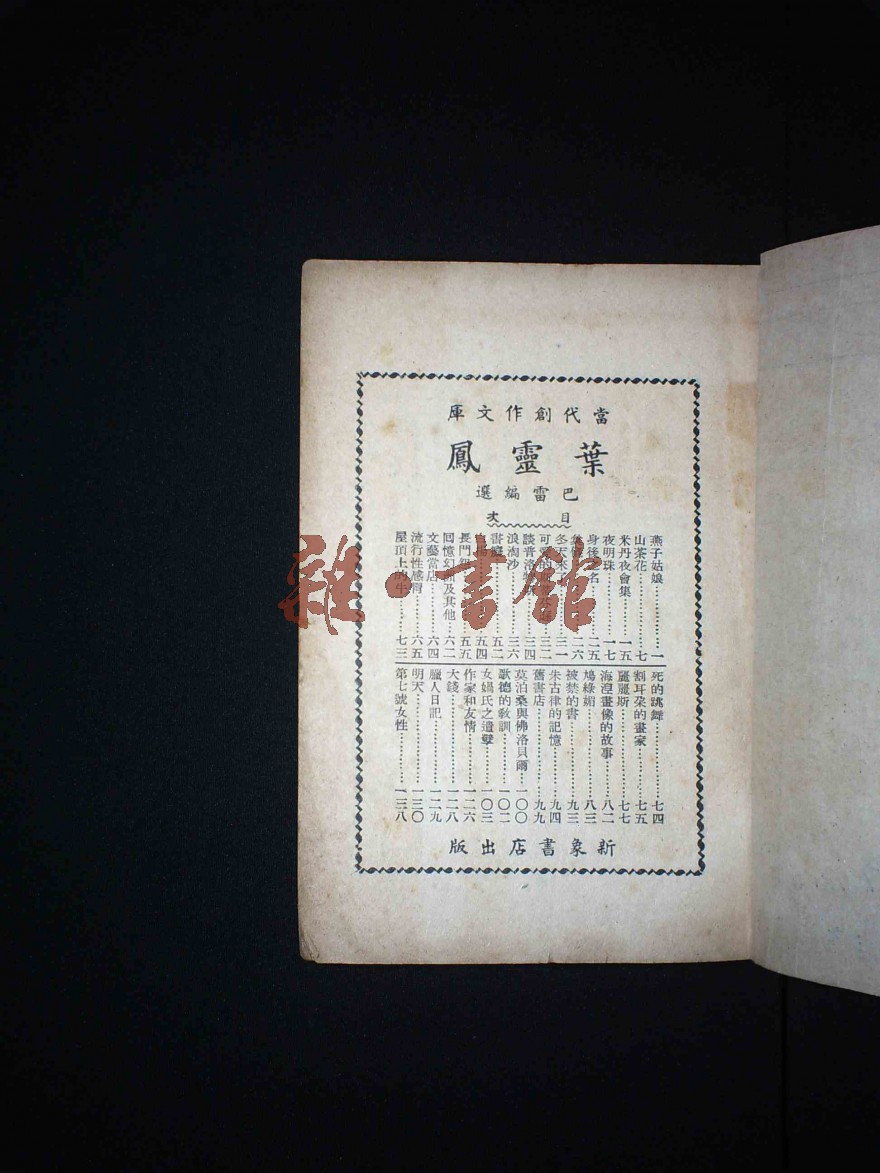 當代創作文庫
葉靈鳳
巴雷編選
目次
燕子姑娘…………一
山茶花…………七
米丹夜會集………一五
夜明珠…………一七
身後之名………二五
二六
冬天來了………三一
可愛的………三二
談普洛………三四
浪淘沙…………三六
書癡…………五二
五四
長門怨…………五五
回憶幻洲及其他…六二
文藝當店………六四
流行性感冒………六五
屋頂上的牛………七三
死的跳舞…………七四
割耳朵的畫家………七五
麗麗斯…………七七
海涅畫像的故事……八二
鳩綠媚…………八三
被禁的書…………九三
朱古律的記憶………九四
舊書店…………九九
莫泊桑與佛洛貝爾…一〇〇
歌德的教訓………一〇二
女媧氏之遺孽………一〇三
作家和友情………一二六
大錢…………一二八
臘人日記…………一二九
明天…………一三〇
第七號女性………一三八
新象書店出版
雜·書館